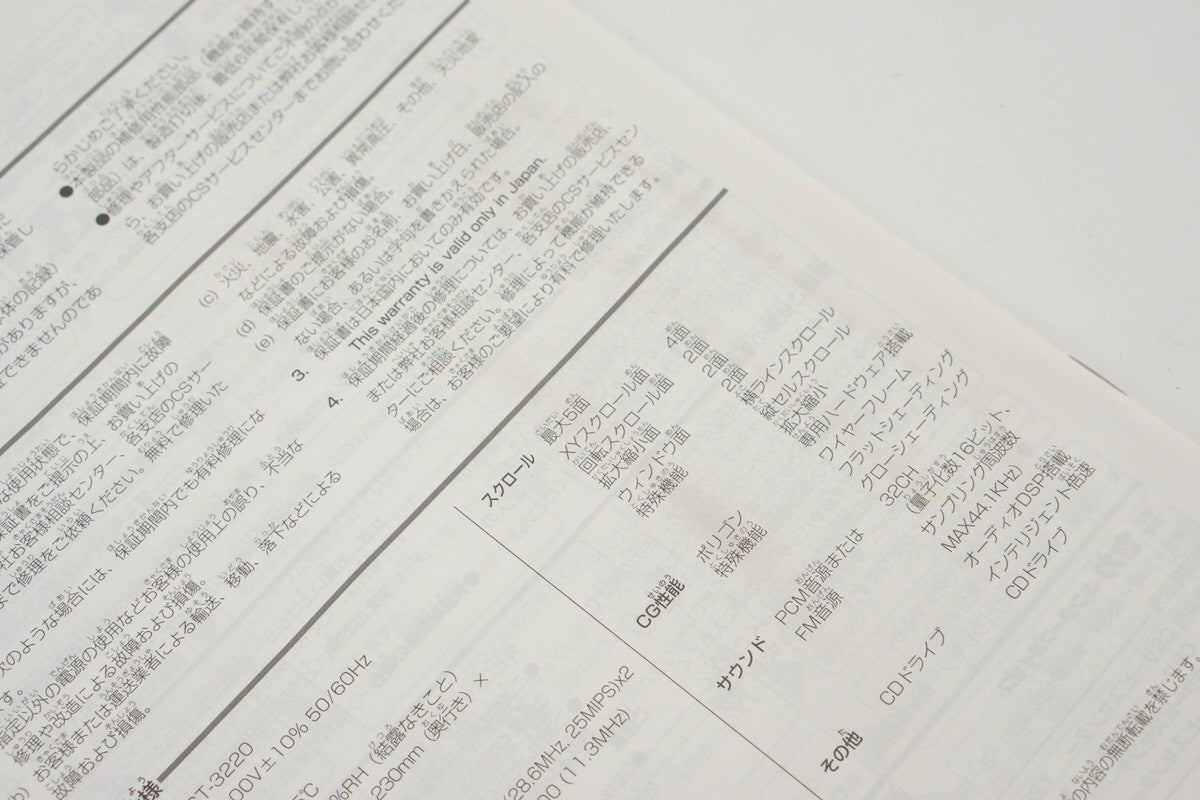 らかじめご了承ください。
●本製品の補修用性能部品(機能を維持す
部品)は、製造打切後、最低6年間保有し
●修理やアフターサービスについてご不明の点が
ら、お買い上げの販売店または弊社お客様相談セ
各支店のCSサービスセンターまでお問い合わせくだ
保管し
体の記録)
がありますが、
できませんのであ
な使用状態で、保証期間内に故障
保証書をご提示の上、お買い上げの
社お客様相談センター、各支店のCSサー
まで修理をご依頼ください。無料で修理いた
次のような場合には、保証期間内でも有料修理にな
す。
指定以外の電源の使用などお客様の使用上の誤り、不当な
修理や改造による故障および損傷。
b) お客様または運送業者による輸送、移動、落下などによる
故障および損傷。
(c) 火災、地震、水害、公害、異常電圧、その他、天災地変
などによる故障および損傷。
(d) 保証書のご提示がない場合。
(e) 保証書にお客様のお名前、お買い上げ日、販売店の記入の
ない場合、あるいは字句を書きかえられた場合。
3. 保証書は日本国内においてのみ有効です。
This warranty is valid only in Japan.
4. 保証期間経過後の修理については、お買い上げの販売店、
または弊社お客様相談センター、各支店のCSサービスセン
ターにご相談ください。修理によって機能が維持できる
場合は、お客様のご要望により有料で修理いたします。
様
ST-3220
00V±10% 50/60Hz
℃
%RH(結露なきこと)
230mm(奥行き)×
(28.6MHz, 25MIPS)x2
00 (11.3MHz)
スクロール
最大5面
XYスクロール面 4面
回転スクロール面 2面
拡大縮小面 2面
ウィンドウ面 2面
特殊機能 横ラインスクロール
縦セルスクロール
拡大縮小
CG性能
専用ハードウェア搭載
ポリゴン ワイヤーフレーム
特殊機能 フラットシェーディング
グローシェーディング
サウンド
PCM音源または 32CH
FM音源 (量子化数16ビット、
サンプリング周波数
MAX44.1KHz)
オーディオDSP搭載
その他
CDドライブ インテリジェント倍速
CDドライブ
の内容の無断転載を禁じます。